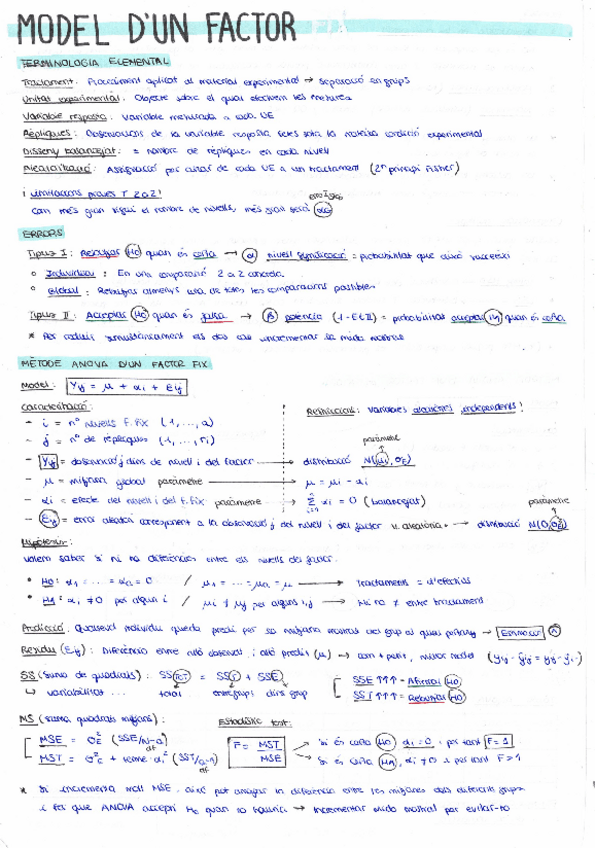 MODEL D'UN FACTOR
TERMINOLOGIA ELEMENTAL
Tractament: Procediment aplicat al material experimental → separació en grups
Unitat experimental: Objecte sobre el qual efectuem les mesures
Variable resposta: Variable mesurada a cada UE
Rèpliques: Observacions de la variable resposta, fetes sota la mateixa condició experimental
Disseny balancejat: = nombre de rèpliques en cada nivell
Aleatorització: Assignació per atzar de cada UE a un tractament (2n principi Fisher)
¡ Limitacions proves T 2 a 2!
error I glob
Com més gran sigui el nombre de nivells, més gran serà αG
ERRORS
Tipus I: Rebutjar H0 quan és certa → α nivell significació = probabilitat que això succeeixi
Individual: En una comparació 2 a 2 concreta.
Global: Rebutjar almenys una de totes les comparacions possibles
Tipus II: Acceptar H0 quan és falsa → β potència (1 - E t II) = probabilitat acceptar H1 quan és certa
* Per reduir simultàniament els dos cal incrementar la mida mostral
MÈTODE ANOVA D'UN FACTOR FIX
Model: Yij = μ + αi + Eij
Característició:
Restriccions: Variables aleatòries independents!
- i = nº nivells F. fix (1, ..., a)
- j = nº de rèpliques (1, ..., ri)
paràmetre
- Yij = observació j dins de nivell i del factor → distribució N(μi, σE)
- μ = mitjana global paràmetre → μ = μi - αi
- αi = efecte del nivell i del F. fix paràmetre → Σ αi = 0 (balancejat)
paràmetre
- Eij = error aleatori corresponent a la observació j del nivell i del factor v. aleatòria → distribució N(0, σE)
Hipòtesis:
Volem saber si hi ha diferències entre els nivells del factor.
• H0: α1 = ... = αa = 0 / μ1 = ... = μa = μ → Tractaments = d'efectius
• H1: αi ≠ 0 per algun i / μi ≠ μj per alguns i,j → Hi ha ≠ entre tractament
Predicció: Qualsevol individu queda predit per la mitjana mostral del grup al qual pertany → Estimador ^
Residu (Eij): Diferència entre allò observat i allò predit (μ) → com + petit, millor model (yij - ŷij = yij - ȳi·)
SS (Suma de quadrats): SSTOT = SST + SSE
↳ variabilitat ... total entre grups dins grup
SSE ↑↑↑ = Afirmar H0
SST ↑↑↑ = Rebutjar H0
MS (suma quadrats mitjans):
Estadístic test:
MSE = σE² (SSE/N-a)
df
MST = σE² + terme αi² (SST/a-1)
df
F = MST / MSE
Si és certa H0, αi = 0 i per tant F = 1
Si és certa H1, αi ≠ 0 i per tant F > 1
* Si incrementa molt MSE, això pot amagar la diferència entre les mitjanes dels diferents grups
i fer que ANOVA accepti H0 quan no hauria → Incrementar mida mostral per evitar-ho